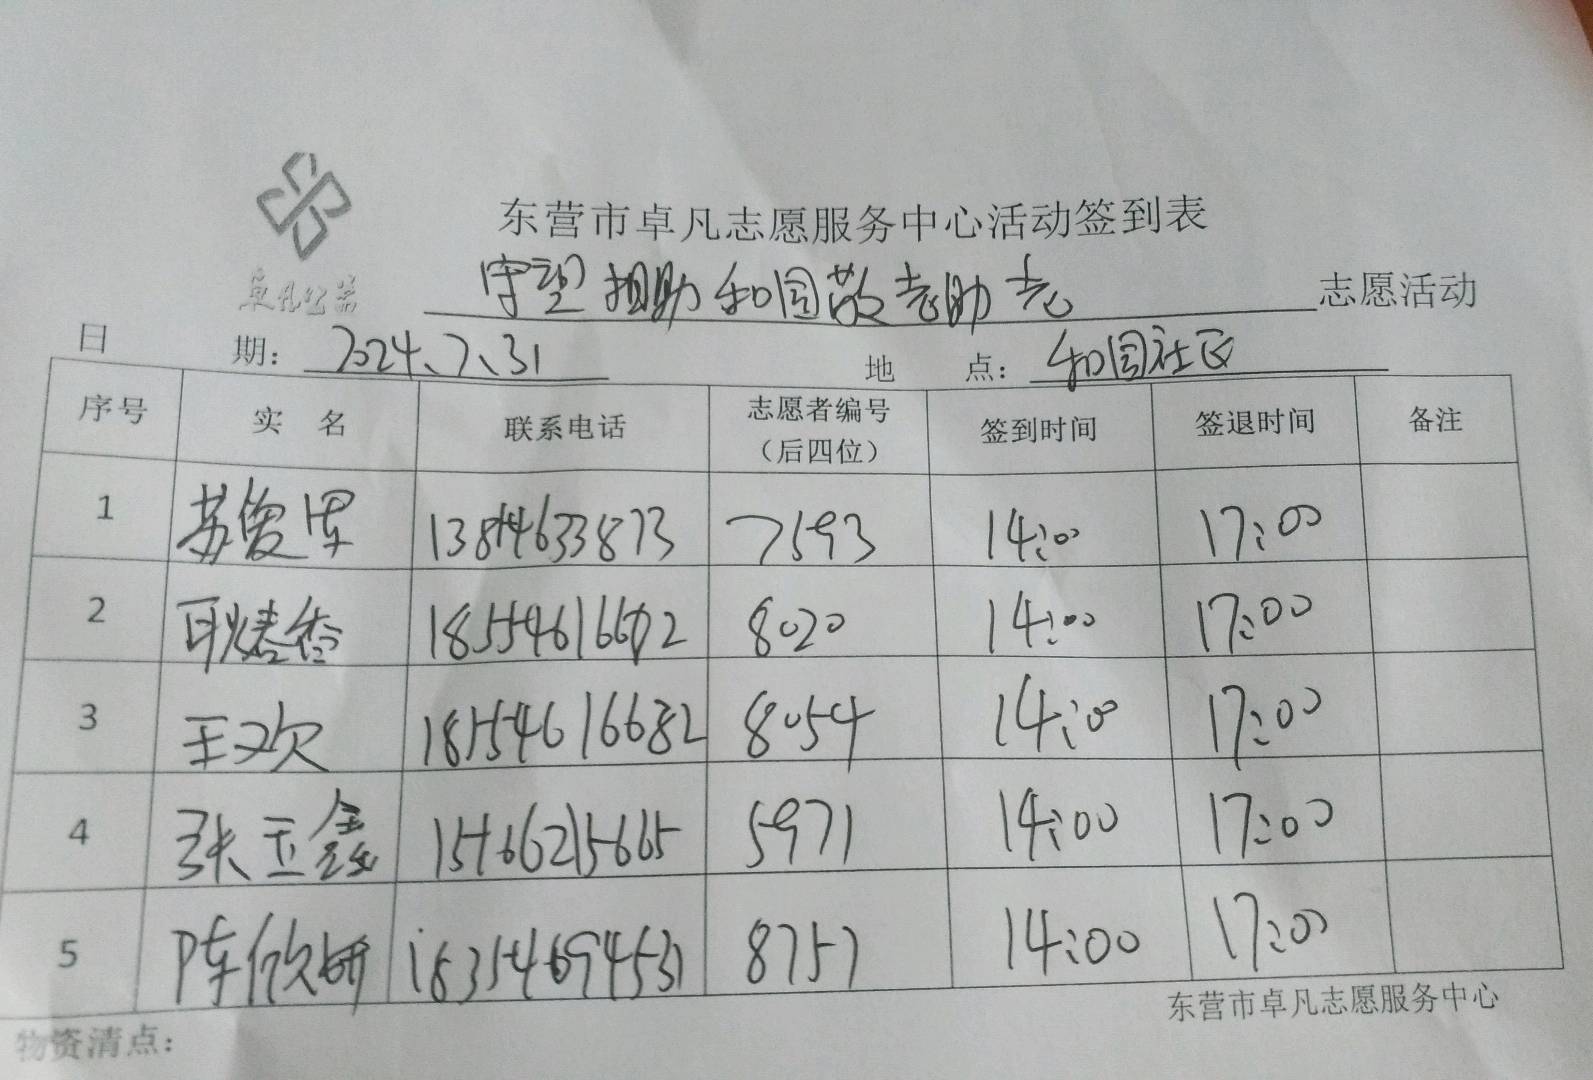 卓凡公益
东营市卓凡志愿服务中心活动签到表
守望相助和园敬老助老 志愿活动
日 期： 2024、7、31 地 点： 和园社区
序号 实 名 联系电话 志愿者编号（后四位） 签到时间 签退时间 备注
1 苏俊 13814633873 7593 14:00 17:00
2 耿 香 8020 14:00 17:00
3 王欢 18554616682 8054 14:00 17:00
4 张玉鑫 15166215665 5971 14:00 17:00
5 陈欣妍 18354694531 8757 14:00 17:00
东营市卓凡志愿服务中心
物资清点：